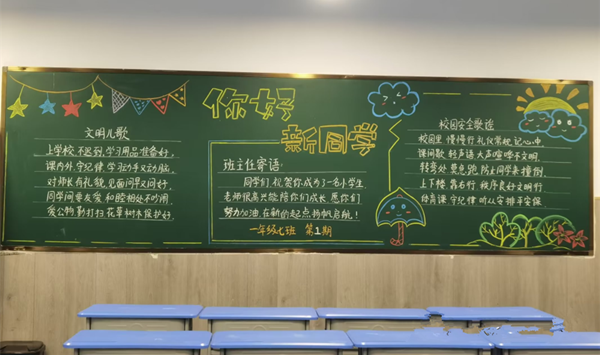 文明儿歌
上学校 不迟到 学习用品准备好.
课内外 守纪律 学习动手又动脑.
对师长 有礼貌 见面问早又问好.
同学间 要友爱 和睦相处不吵闹.
爱公物 勤打扫 花草树木保护好.
你好
新同学
班主任寄语:
同学们, 祝贺你成为了一名小学生
老师很高兴能陪你们成长 愿你们
努力加油, 在新的起点扬帆启航!
一年级七班 第1期
校园安全歌谣
校园里 慢慢行 礼仪常规记心中
课间歇 轻声语 大声喧哗不文明.
转弯处 莫急跑 防止同学来撞倒.
上下楼 靠右行 秩序良好文明行
体育课 守纪律 听从安排平安保.